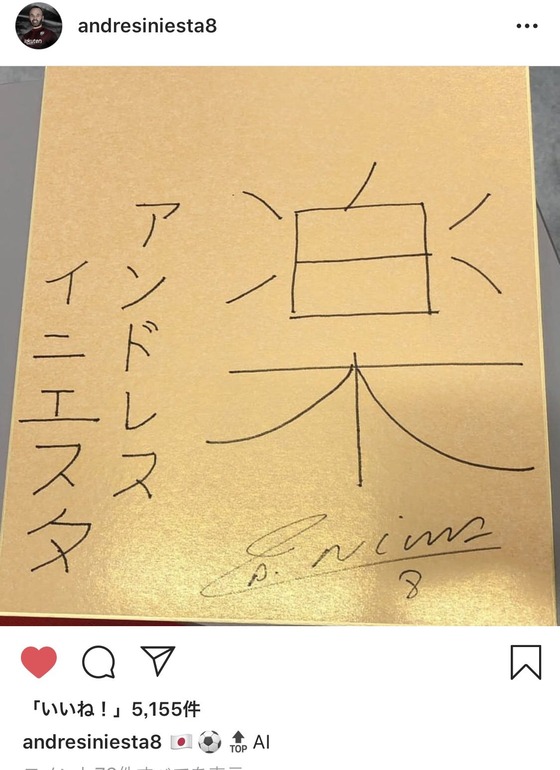 andresiniesta8
楽
アンドレス
イニエスタ
8
「いいね！」5,155件
andresiniesta8 🇯🇵 ⚽ 🔝 AI